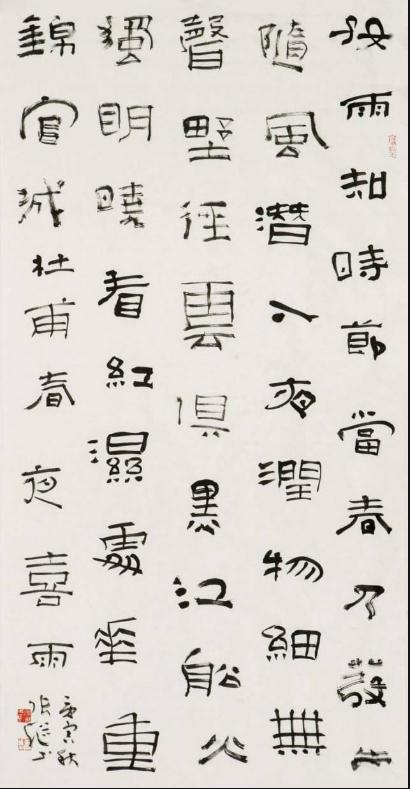 好雨知時節當春乃發生
隨風潛入夜潤物細無
聲野徑雲俱黑江船火
獨明曉看紅濕處華重
錦官城杜甫春夜喜雨
庚寅秋
張繼书